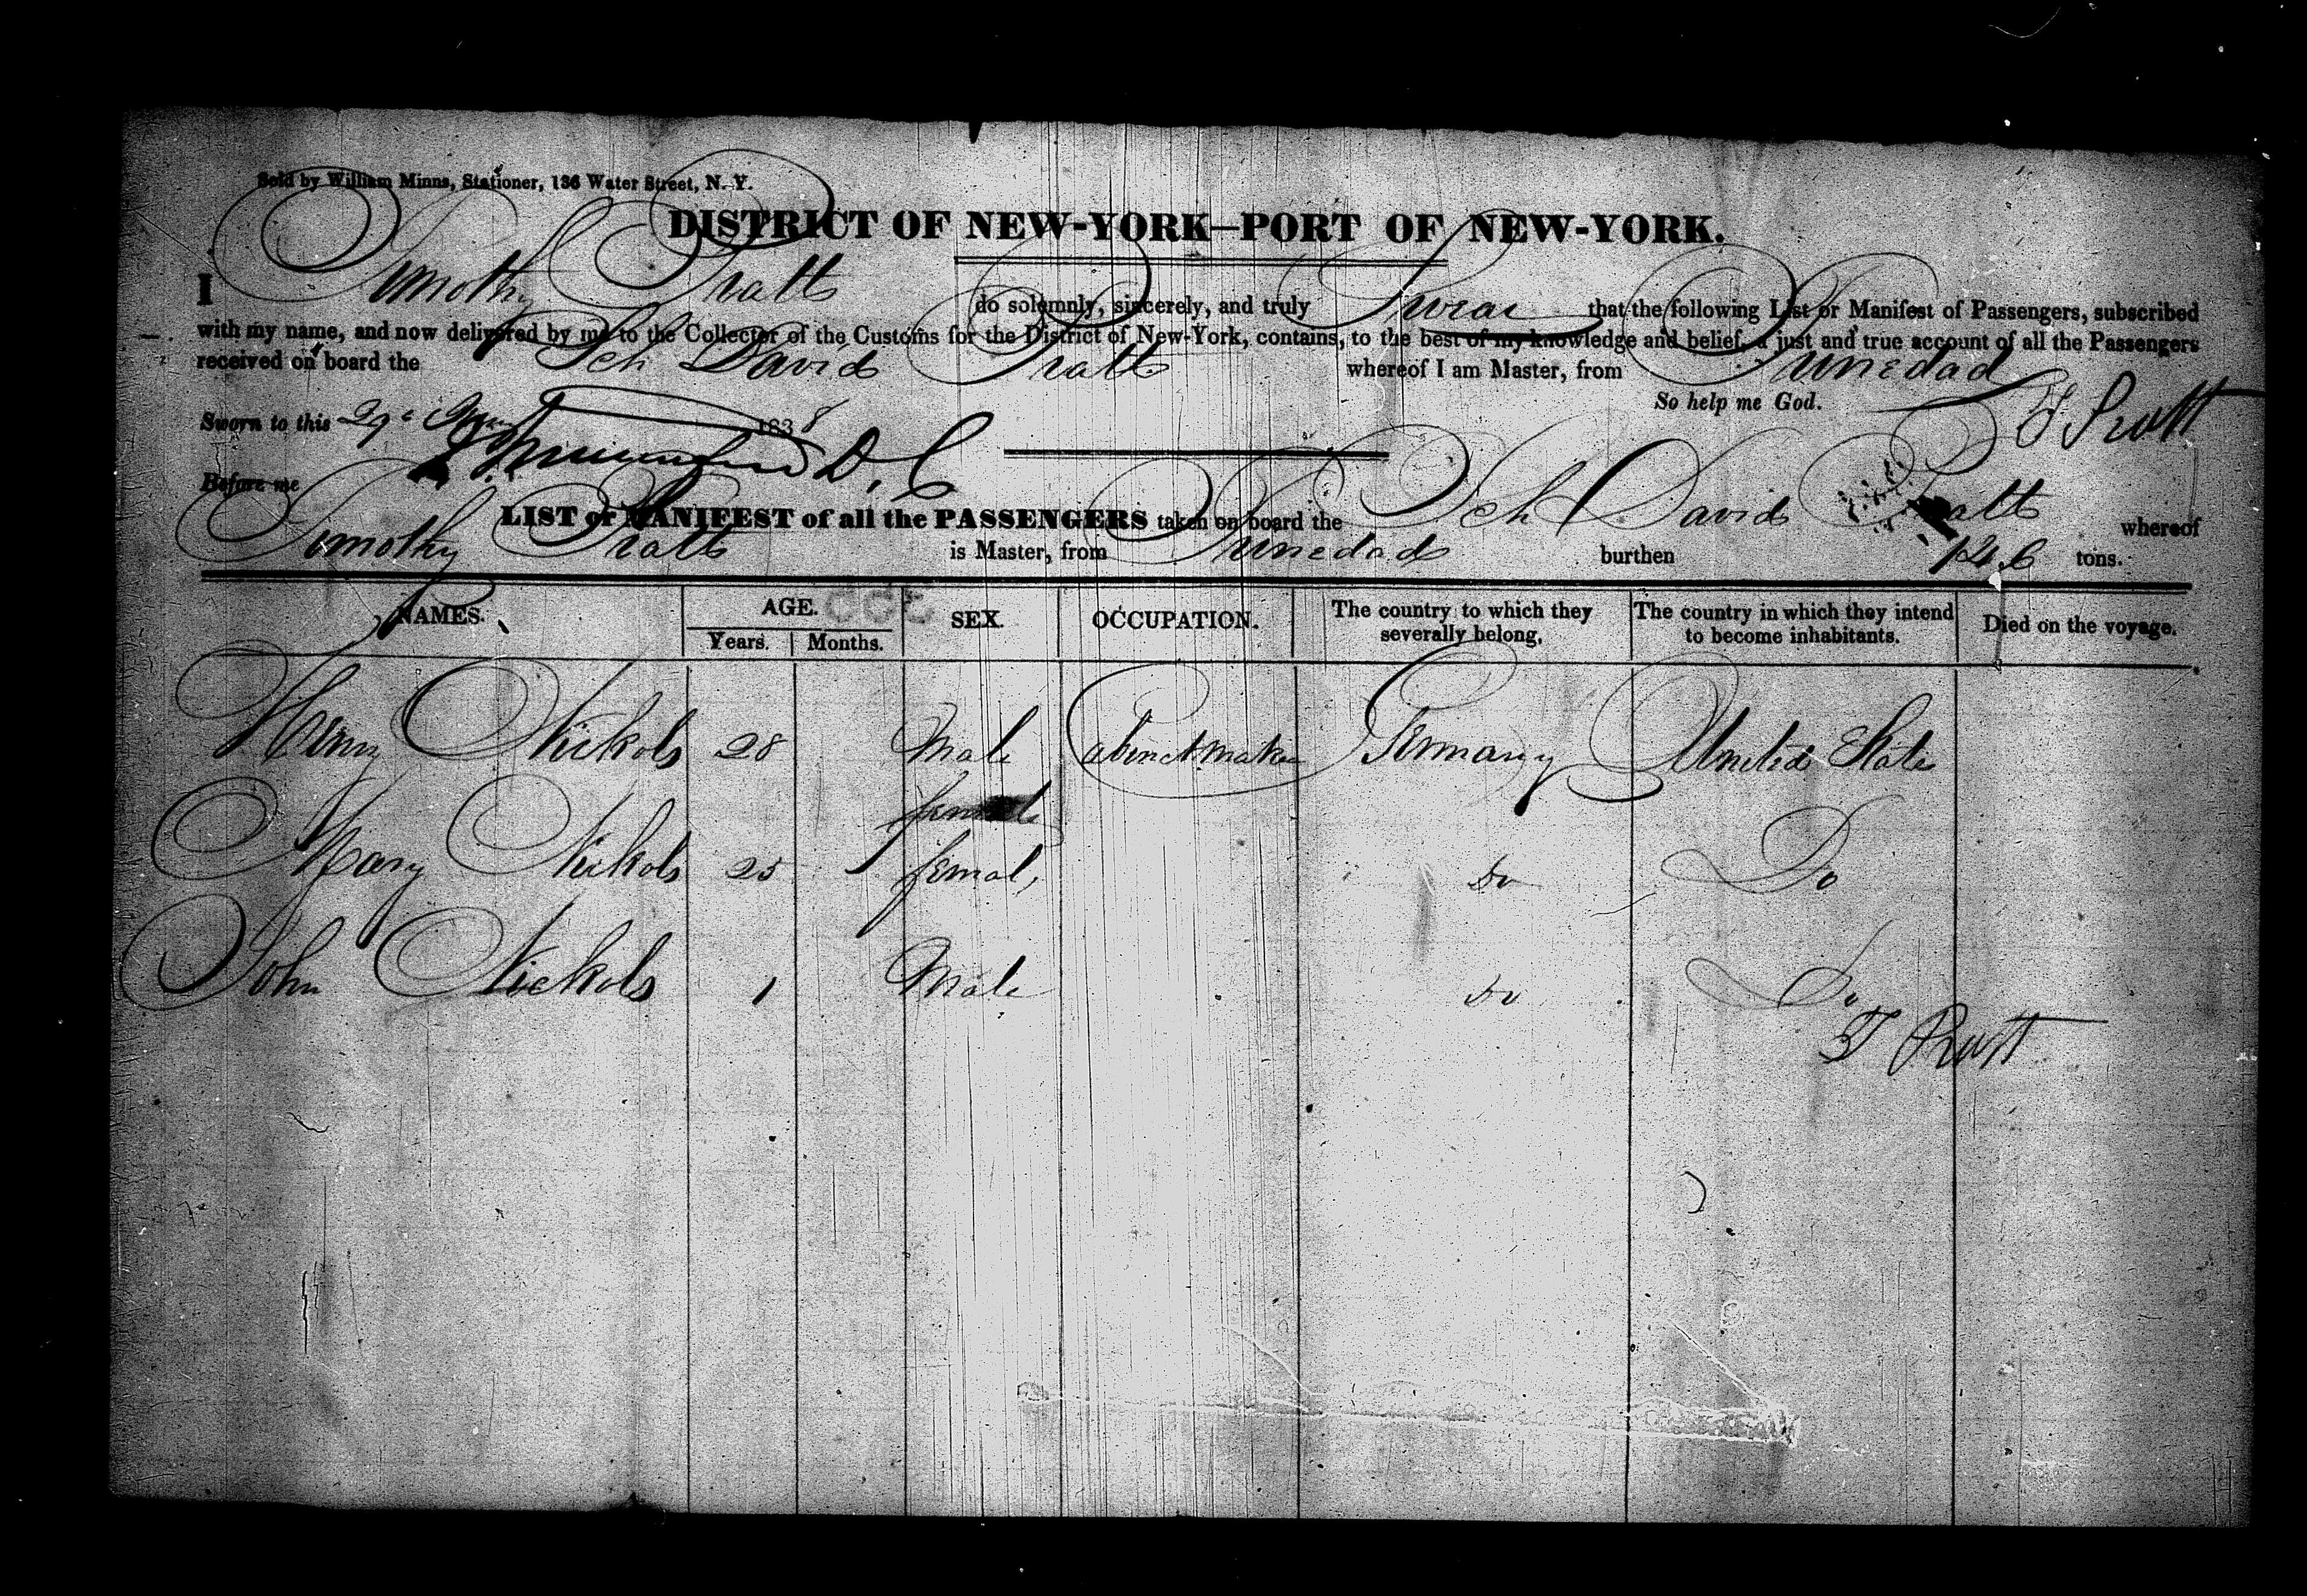 Sold by William Minns, Stationer, 136 Water Street, N. Y.
DISTRICT OF NEW-YORK—PORT OF NEW-YORK.
I Timothy Pratt do solemnly, sincerely, and truly Swear that the following List or Manifest of Passengers, subscribed
with my name, and now delivered by me to the Collector of the Customs for the District of New-York, contains, to the best of my knowledge and belief, a just and true account of all the Passengers
received on board the Sch David Pratt whereof I am Master, from Trinedad
So help me God.
Sworn to this 29 1838 T Pratt
Before me D. C
LIST or MANIFEST of all the PASSENGERS taken on board the Sch David Pratt whereof
Timothy Pratt is Master, from Trinedad burthen 146 tons.
NAMES. AGE. SEX. OCCUPATION. The country to which they severally belong. The country in which they intend to become inhabitants. Died on the voyage.
Years. Months.
Henry Nickols 28 Male Cabinetmaker Germany United State
female
Mary Nickols 25 femal, Do Do
John Nickols 1 Male Do Do
T Pratt